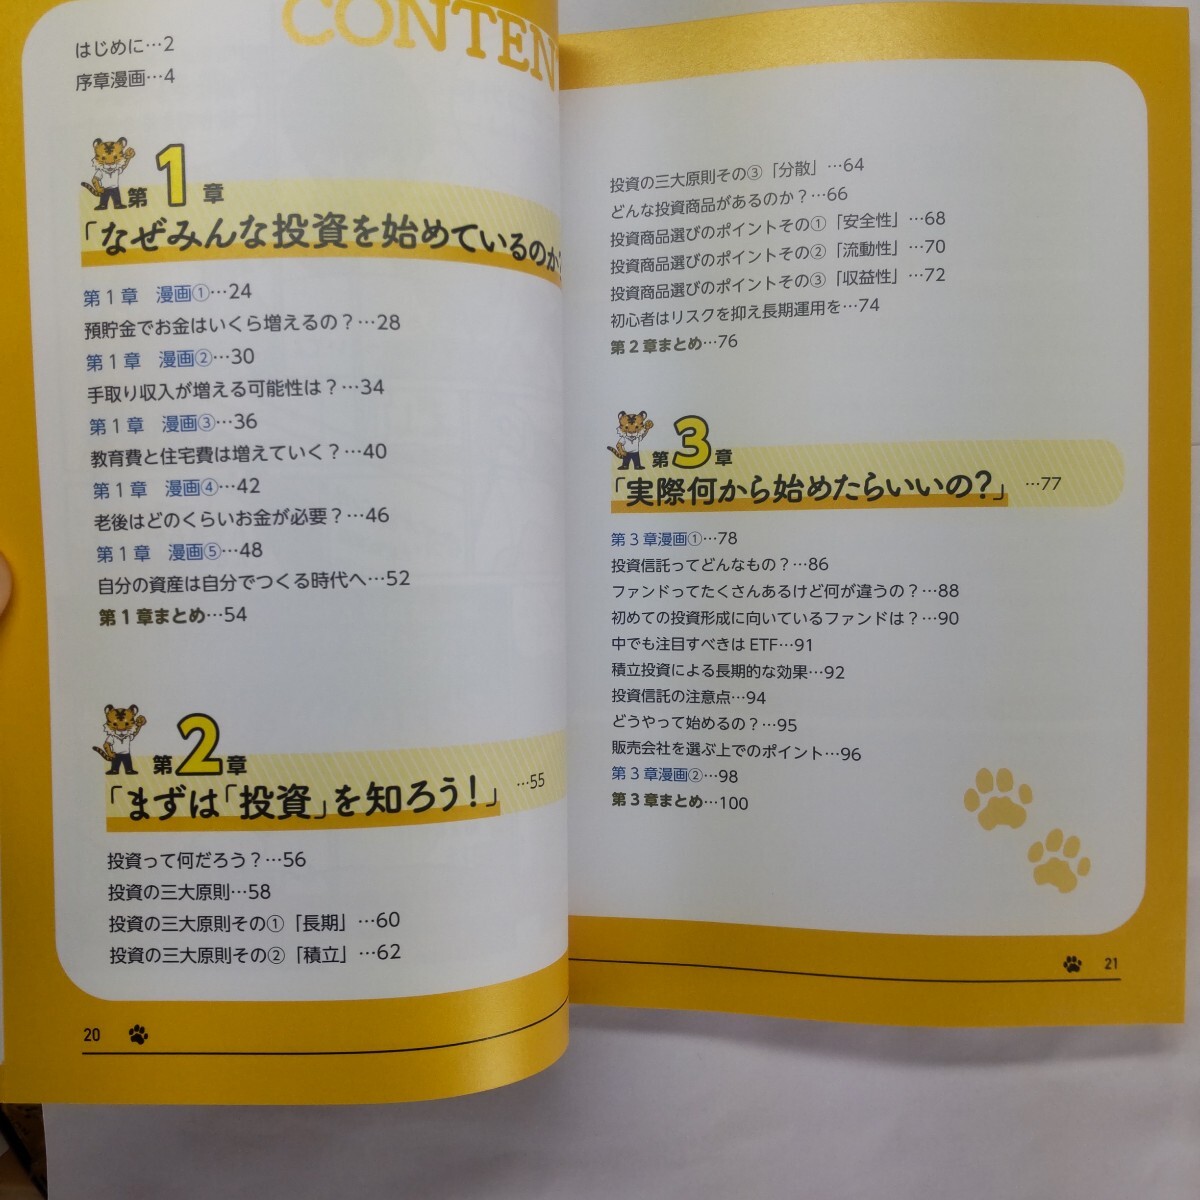 CONTEN
はじめに…2
序章漫画…4
第1章
「なぜみんな投資を始めているのか?
第1章 漫画①…24
預貯金でお金はいくら増えるの？…28
第1章 漫画②…30
手取り収入が増える可能性は？…34
第1章 漫画③…36
教育費と住宅費は増えていく？…40
第1章 漫画④…42
老後はどのくらいお金が必要？…46
第1章 漫画⑤…48
自分の資産は自分でつくる時代へ…52
第1章まとめ…54
第2章
「まずは「投資」を知ろう！」 …55
投資って何だろう？…56
投資の三大原則…58
投資の三大原則その①「長期」…60
投資の三大原則その②「積立」…62
20
投資の三大原則その③「分散」…64
どんな投資商品があるのか？…66
投資商品選びのポイントその①「安全性」…68
投資商品選びのポイントその②「流動性」…70
投資商品選びのポイントその③「収益性」…72
初心者はリスクを抑え長期運用を…74
第2章まとめ…76
第3章
「実際何から始めたらいいの？」 …77
第3章漫画①…78
投資信託ってどんなもの？…86
ファンドってたくさんあるけど何が違うの？…88
初めての投資形成に向いているファンドは？…90
中でも注目すべきは ETF…91
積立投資による長期的な効果…92
投資信託の注意点…94
どうやって始めるの？…95
販売会社を選ぶ上でのポイント…96
第3章漫画②…98
第3章まとめ…100
21